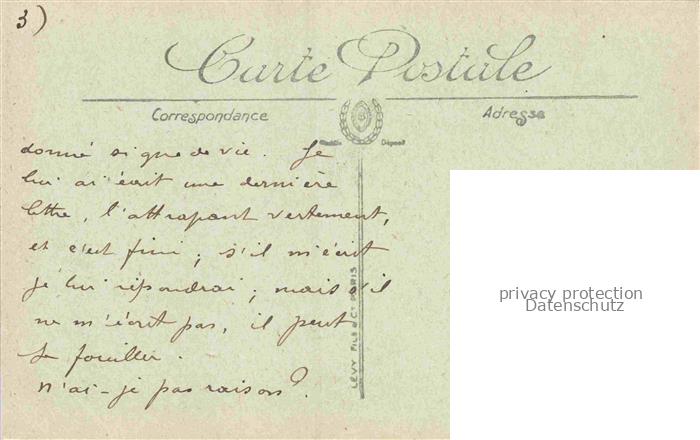 3)
Carte Postale
Correspondance
Adresse
donné signe de vie. Je
lui ai écrit une dernière
lettre, l'attrapant vertement,
et c'est fini; s'il m'écrit
je lui répondrai; mais s'il
ne m'écrit pas, il peut
se fouiller.
N'ai-je pas raison?
LÉVY FILS & Cie PARIS
privacy protection
Datenschutz